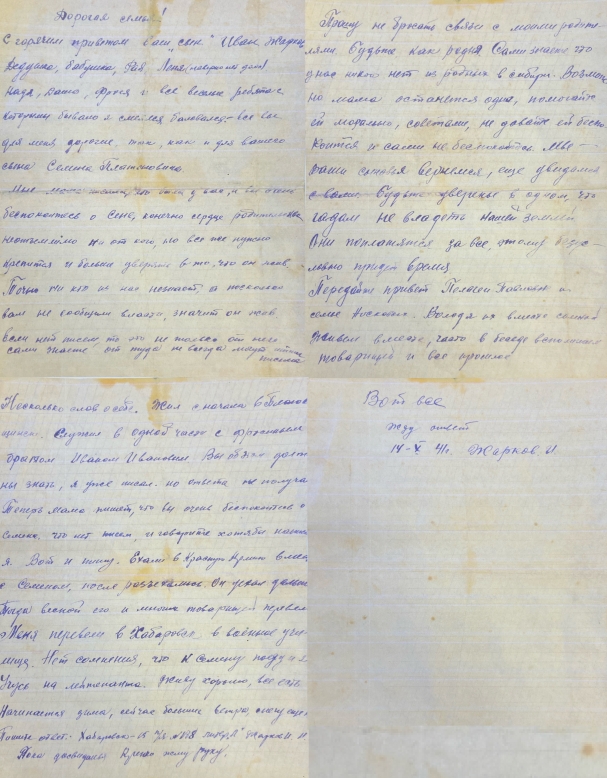 Дорогая семья!
С горячим приветом ваш "сын" Иван Жарков
Дедушка, бабушка,
Надя, Даша, Фрося и все веселые ребятки с
которыми бывало я смеялся баловался все вы
для меня дорогие, так, как и для вашего
сына Семена Платоновича.
беспокоитесь о Сене, конечно сердце родительское
но от кого, но все же нужно
крепится и больше уверенья в то, что он жив.
Точно ни кто из нас не знает, а поскольку
вам не сообщили власти, значит он жив.
если нет писем то это не только от него
сами знаете от туда не всегда могут
письма
Прошу не бросать связи с моими родите-
лями. Будьте как родня Сами знаете что
у нас никого нет из родных в сибири. Возмож
но мама останется одна, помогайте
ей морально, советами, не давайте ей беспо-
коится и сами не беспокойтесь Мы —
ваши сыновья вернемся, еще увидимся
с вами. Будьте уверены в одном, что
гадам не владеть нашей землей
Они поплатятся за все этому безус-
ловно придет время
Передайте привет Пелагеи Павловне и
семье Володя их вместе со мной
Живем вместе, часто в беседе вспоминаем
товарищей и все прошлое
Несколько слов о себе. Жил с начала в
служил в одной части с
братом Иваном Ивановичем Вы об этом долж
ны знать, я уже писал. но ответа не получал
Теперь мама пишет, что вы очень беспокоитесь о
Семене, что нет писем, и говорите хотябы написал
я. Вот и пишу. Ехали в Красную Армию вместе
с Семеном, после разъехались. Он уехал дальше
Тогда весной его и многих товарищей перевели
Меня перевели в Хабаровск, в военное учи-
лище. Нет сомнения, что к Семену поеду и я
Учусь на лейтенанта. Живу хорошо, все есть.
Начинается зима, сейчас большие ветра,
Пишите ответ. Хабаровск-
Пока досвиданья Крепко жму руку.
Вот все
жду ответ
14-X 41г. Жарков И.